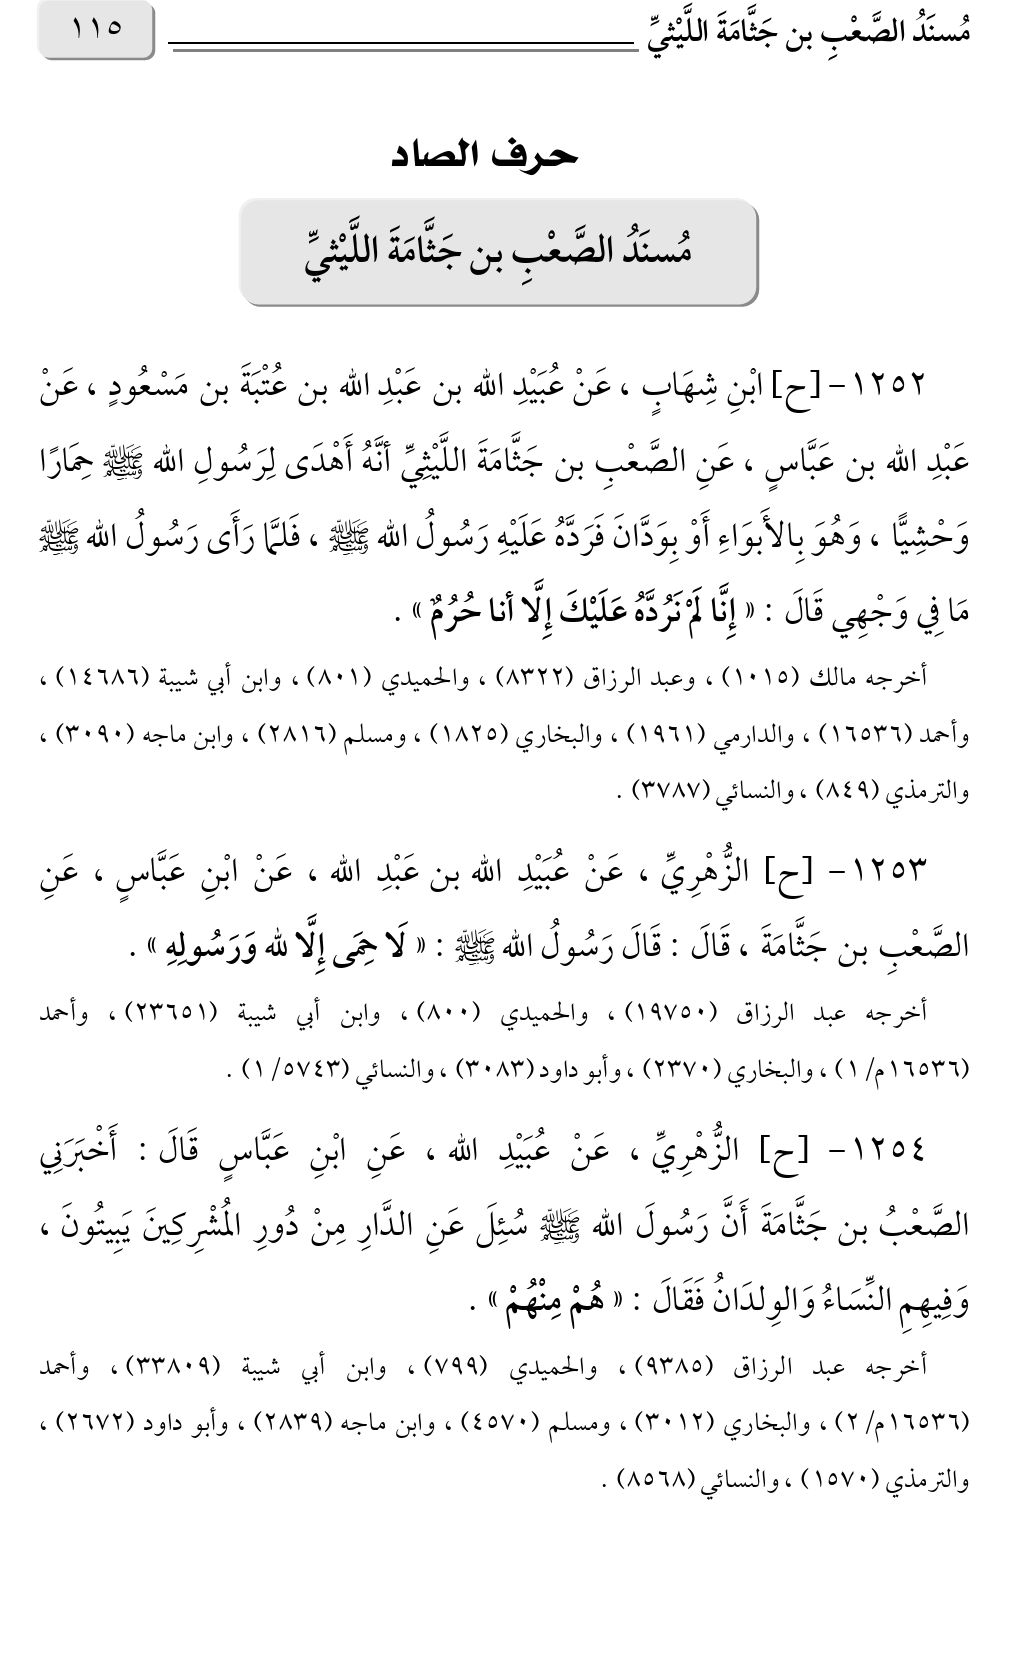 مُسنَدُ الصَّعْبِ بن جَثَّامَةَ اللَّيْثيِّ
١١٥
حرف الصاد
مُسنَدُ الصَّعْبِ بن جَثَّامَةَ اللَّيْثيِّ
١٢٥٢- [ح] ابْنِ شِهَابٍ ، عَنْ عُبَيْدِ الله بن عَبْدِ الله بن عُتْبَةَ بن مَسْعُودٍ ، عَنْ
عَبْدِ الله بن عَبَّاسٍ ، عَنِ الصَّعْبِ بن جَثَّامَةَ اللَّيْثِيِّ أنَّهُ أَهْدَى لِرَسُولِ الله ﷺ حِمَارًا
وَحْشِيًّا ، وَهُوَ بِالأَبوَاءِ أَوْ بِوَدَّانَ فَرَدَّهُ عَلَيْهِ رَسُولُ الله ﷺ ، فَلمَّا رَأَى رَسُولُ الله ﷺ
مَا فِي وَجْهِي قَالَ : « إِنَّا لَمْ نَرُدَّهُ عَلَيْكَ إِلَّا أنا حُرُمٌ » .
أخرجه مالك (١٠١٥) ، وعبد الرزاق (٨٣٢٢) ، والحميدي (٨٠١) ، وابن أبي شيبة (١٤٦٨٦) ،
وأحمد (١٦٥٣٦) ، والدارمي (١٩٦١) ، والبخاري (١٨٢٥) ، ومسلم (٢٨١٦) ، وابن ماجه (٣٠٩٠) ،
والترمذي (٨٤٩) ، والنسائي (٣٧٨٧) .
١٢٥٣- [ح] الزُّهْرِيِّ ، عَنْ عُبَيْدِ الله بن عَبْدِ الله ، عَنْ ابْنِ عَبَّاسٍ ، عَنِ
الصَّعْبِ بن جَثَّامَةَ ، قَالَ : قَالَ رَسُولُ الله ﷺ : « لَا حِمَى إِلَّا لله وَرَسُولِهِ » .
أخرجه عبد الرزاق (١٩٧٥٠) ، والحميدي (٨٠٠) ، وابن أبي شيبة (٢٣٦٥١) ، وأحمد
(١٦٥٣٦م/ ١) ، والبخاري (٢٣٧٠) ، وأبو داود (٣٠٨٣) ، والنسائي (٥٧٤٣/ ١) .
١٢٥٤- [ح] الزُّهْرِيِّ ، عَنْ عُبَيْدِ الله ، عَنِ ابْنِ عَبَّاسٍ قَالَ : أَخْبَرَنِي
الصَّعْبُ بن جَثَّامَةَ أَنَّ رَسُولَ الله ﷺ سُئِلَ عَنِ الدَّارِ مِنْ دُورِ المُشْرِكِينَ يَبِيتُونَ ،
وَفِيهِمِ النِّسَاءُ وَالوِلدَانُ فَقَالَ : « هُمْ مِنْهُمْ » .
أخرجه عبد الرزاق (٩٣٨٥) ، والحميدي (٧٩٩) ، وابن أبي شيبة (٣٣٨٠٩) ، وأحمد
(١٦٥٣٦م/ ٢) ، والبخاري (٣٠١٢) ، ومسلم (٤٥٧٠) ، وابن ماجه (٢٨٣٩) ، وأبو داود (٢٦٧٢) ،
والترمذي (١٥٧٠) ، والنسائي (٨٥٦٨) .